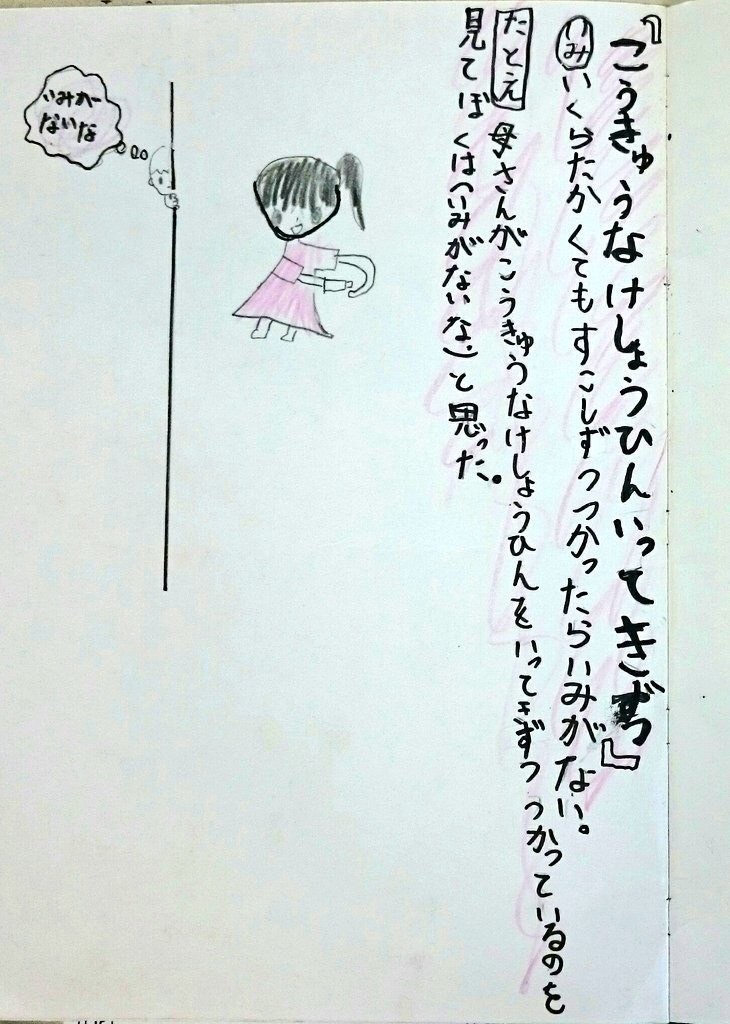 『こうきゅうなけしょうひんいってきずつ』
いみ いくらたかくてもすこしずつつかったらいみがない。
たとえ 母さんがこうきゅうなけしょうひんをいってきずつつかっているのを
見てぼくは「いみがないな」と思った。
いみがー
ないな